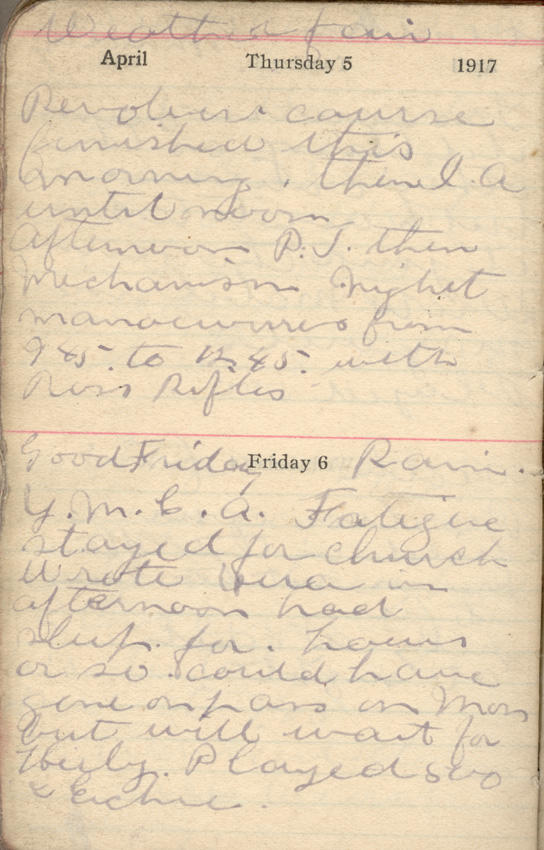 Weather fair
April Thursday 5 1917
Revolver course
finished this
morning, then I. A
until noon
afternoon P.T. then
Mechanism Night
manoeuvres from
9 45. to 12.45. with
Ross Rifles
Good Friday Friday 6 Rain.
Y.M.C.A. Fatigue
stayed for church
Wrote Vera in
afternoon had
sleep. for. hours
or so. could have
gone on pass on Mon
but will wait for
Played 500
& Euchre.